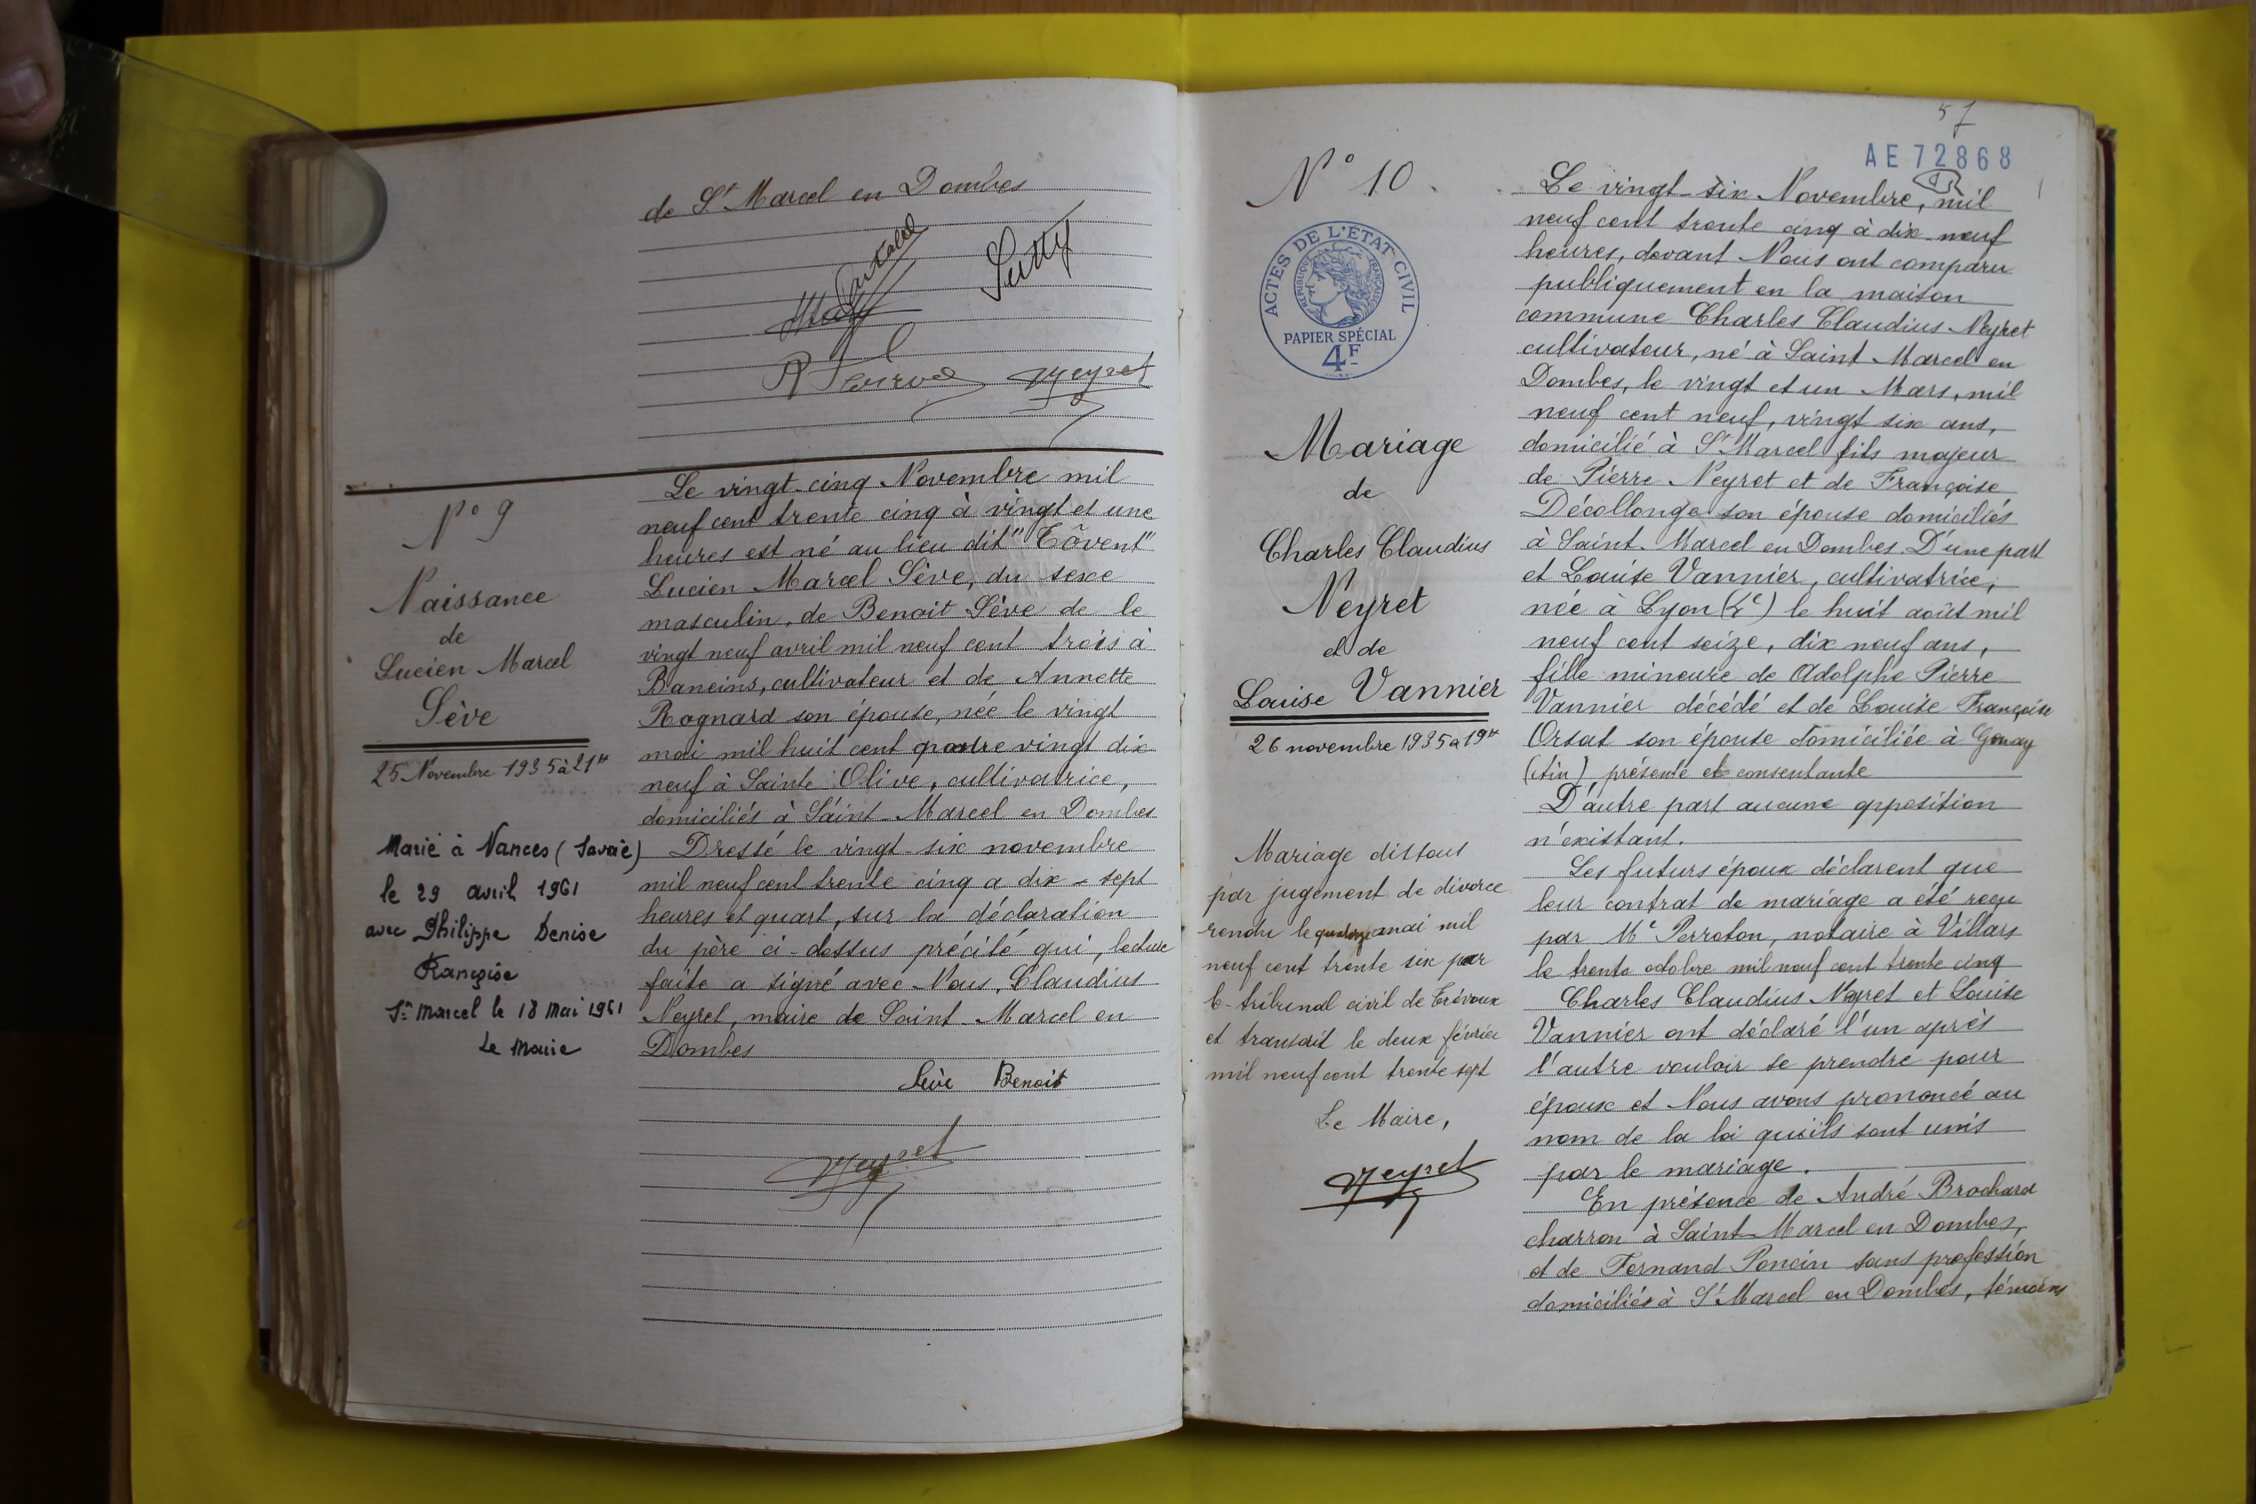 de St Marcel en Dombes
Neyret
N° 9
Naissance
de
Lucien Marcel
Sève
25 Novembre 1935 à 21H
Marié à Nances (Savoie)
le 29 avril 1961
avec Philippe Denise
Françoise
St Marcel le 18 Mai 1961
Le Maire
Le vingt-cinq Novembre mil
neuf cent trente cinq à vingt et une
heures est né au lieu dit "Tôvent"
Lucien Marcel Sève, du sexe
masculin, de Benoit Sève de le
vingt neuf avril mil neuf cent trois à
Baneins, cultivateur et de Annette
Rognard son épouse, née le vingt
mai mil huit cent quatre vingt dix
neuf à Sainte Olive, cultivatrice,
domiciliés à Saint-Marcel en Dombes
Dressé le vingt-six novembre
mil neuf cent trente cinq a dix-sept
heures et quart, sur la déclaration
du père ci-dessus précité qui, lecture
faite a signé avec Nous, Claudius
Neyret, maire de Saint-Marcel en
Dombes
Sève Benoit
Neyret
57
AE 72868
N° 10.
ACTES DE L'ÉTAT CIVIL
RÉPUBLIQUE FRANÇAISE
PAPIER SPÉCIAL
4F
Mariage
de
Charles Claudius
Neyret
et de
Louise Vannier
26 novembre 1935 à 19H
Mariage dissous
par jugement de divorce
rendu le quatorze mai mil
neuf cent trente six par
le tribunal civil de Trévoux
et transcrit le deux février
mil neuf cent trente sept
Le Maire,
Neyret
Le vingt-six Novembre, mil
neuf cent trente cinq à dix-neuf
heures, devant Nous ont comparu
publiquement en la maison
commune Charles Claudius Neyret
cultivateur, né à Saint-Marcel en
Dombes, le vingt et un Mars, mil
neuf cent neuf, vingt six ans,
domicilié à St Marcel fils majeur
de Pierre Neyret et de Françoise
Décollonge son épouse domiciliés
à Saint-Marcel en Dombes. D'une part
et Louise Vannier, cultivatrice,
née à Lyon le huit août mil
neuf cent seize, dix neuf ans,
fille mineure de Adolphe Pierre
Vannier décédé et de Louise Françoise
Orsat son épouse domiciliée à
(Ain) présente et consentante
D'autre part aucune opposition
n'existant.
Les futurs époux déclarent que
leur contrat de mariage a été reçu
par Me Perroton, notaire à Villars
le trente octobre mil neuf cent trente cinq
Charles Claudius Neyret et Louise
Vannier ont déclaré l'un après
l'autre vouloir se prendre pour
époux et Nous avons prononcé au
nom de la loi qu'ils sont unis
par le mariage.
En présence de André Brochard
charron à Saint-Marcel en Dombes,
et de Fernand Poncin sans profession
domiciliés à St Marcel en Dombes, témoins